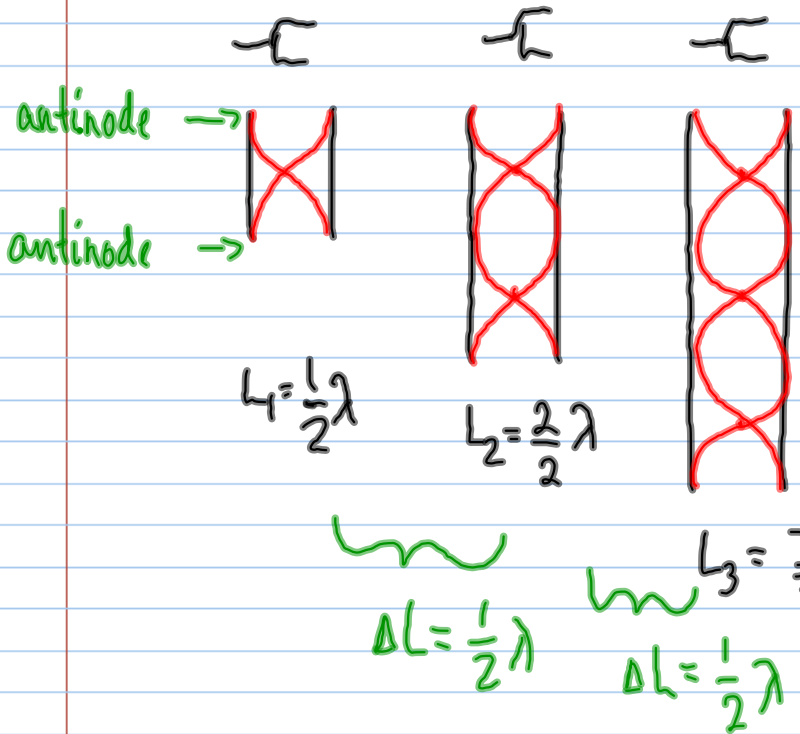 antinode →
antinode →
L₁ = 1/2 λ
L₂ = 2/2 λ
L₃ =
ΔL = 1/2 λ
ΔL = 1/2 λ